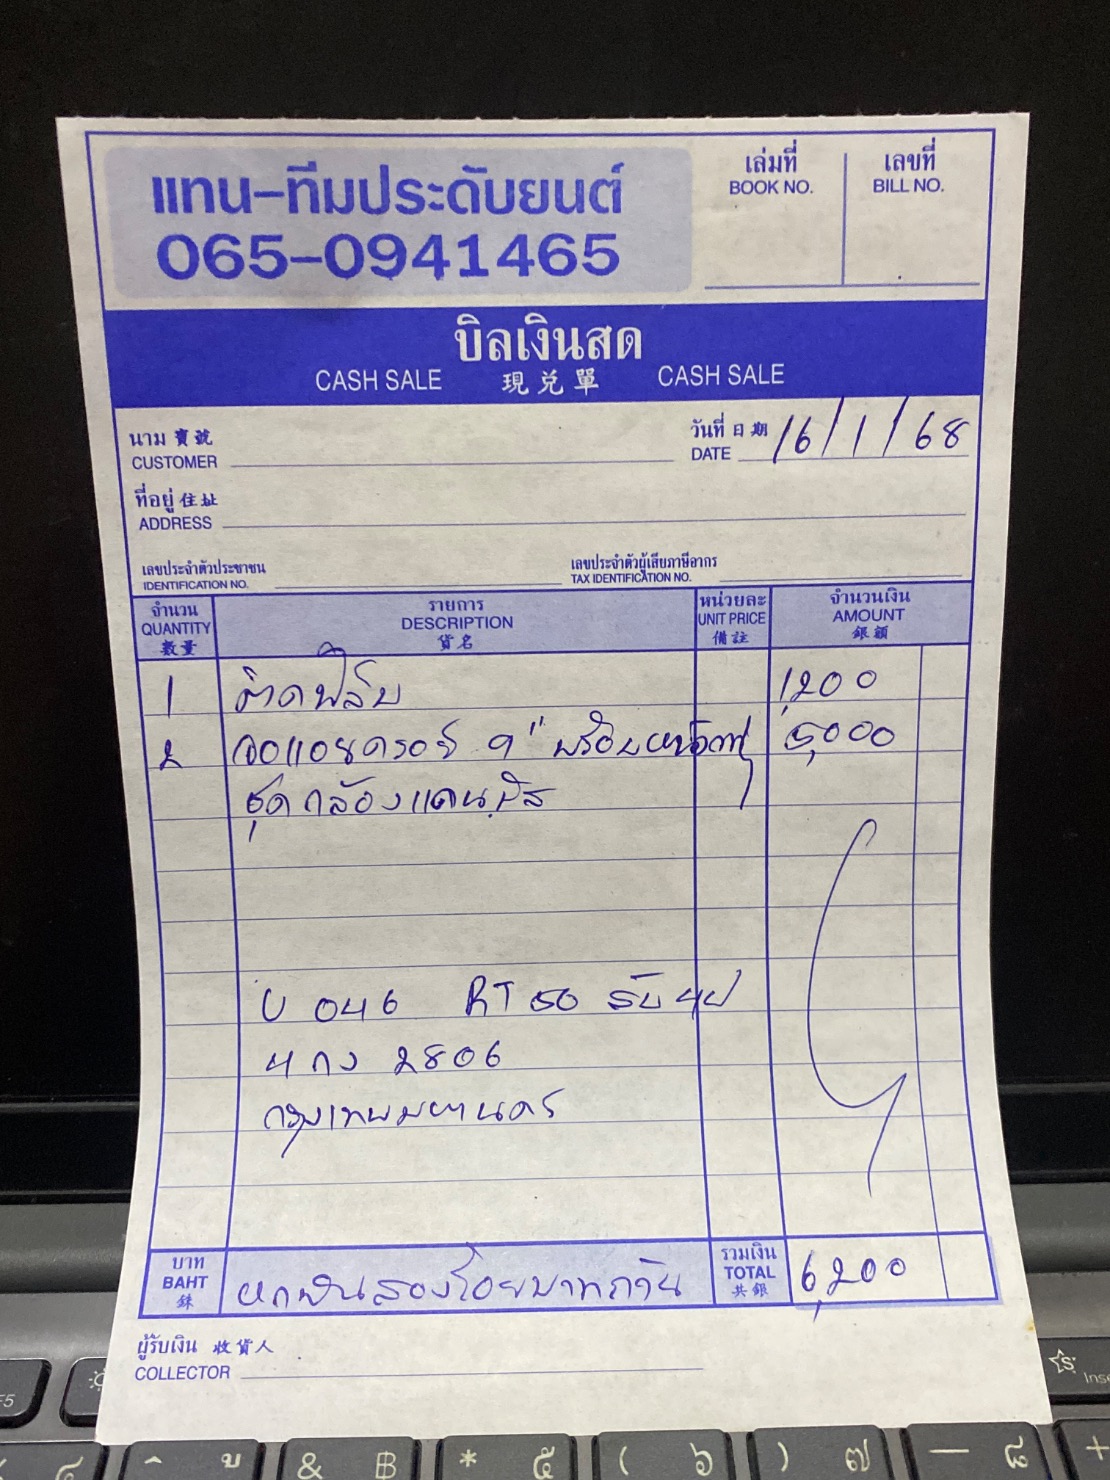 แทน-ทีมประดับยนต์
065-0941465
เล่มที่
BOOK NO.
เลขที่
BILL NO.
บิลเงินสด
CASH SALE 現兌單 CASH SALE
นาม寶號
CUSTOMER
วันที่日期
DATE 16/1/68
ที่อยู่住址
ADDRESS
เลขประจำตัวประชาชน
IDENTIFICATION NO.
เลขประจำตัวผู้เสียภาษีอากร
TAX IDENTIFICATION NO.
จำนวน
QUANTITY
數量
รายการ
DESCRIPTION
貨名
หน่วยละ
UNIT PRICE
備註
จำนวนเงิน
AMOUNT
銀額
1 ติดฟิล์ม 1,200
2 จอแอนดรอย 9" พร้อม 5,000
ชุดกล้อง
046 RT 50
4 กง 2806
กรุงเทพมหานคร
บาท
BAHT
銖
หกพันสองร้อยบาทถ้วน
รวมเงิน
TOTAL
共銀
6,200
ผู้รับเงิน 收貨人
COLLECTOR
F5
Inse
๔
ฃ
&
฿
*
๕
(
๖
)
๗
—
๘
+